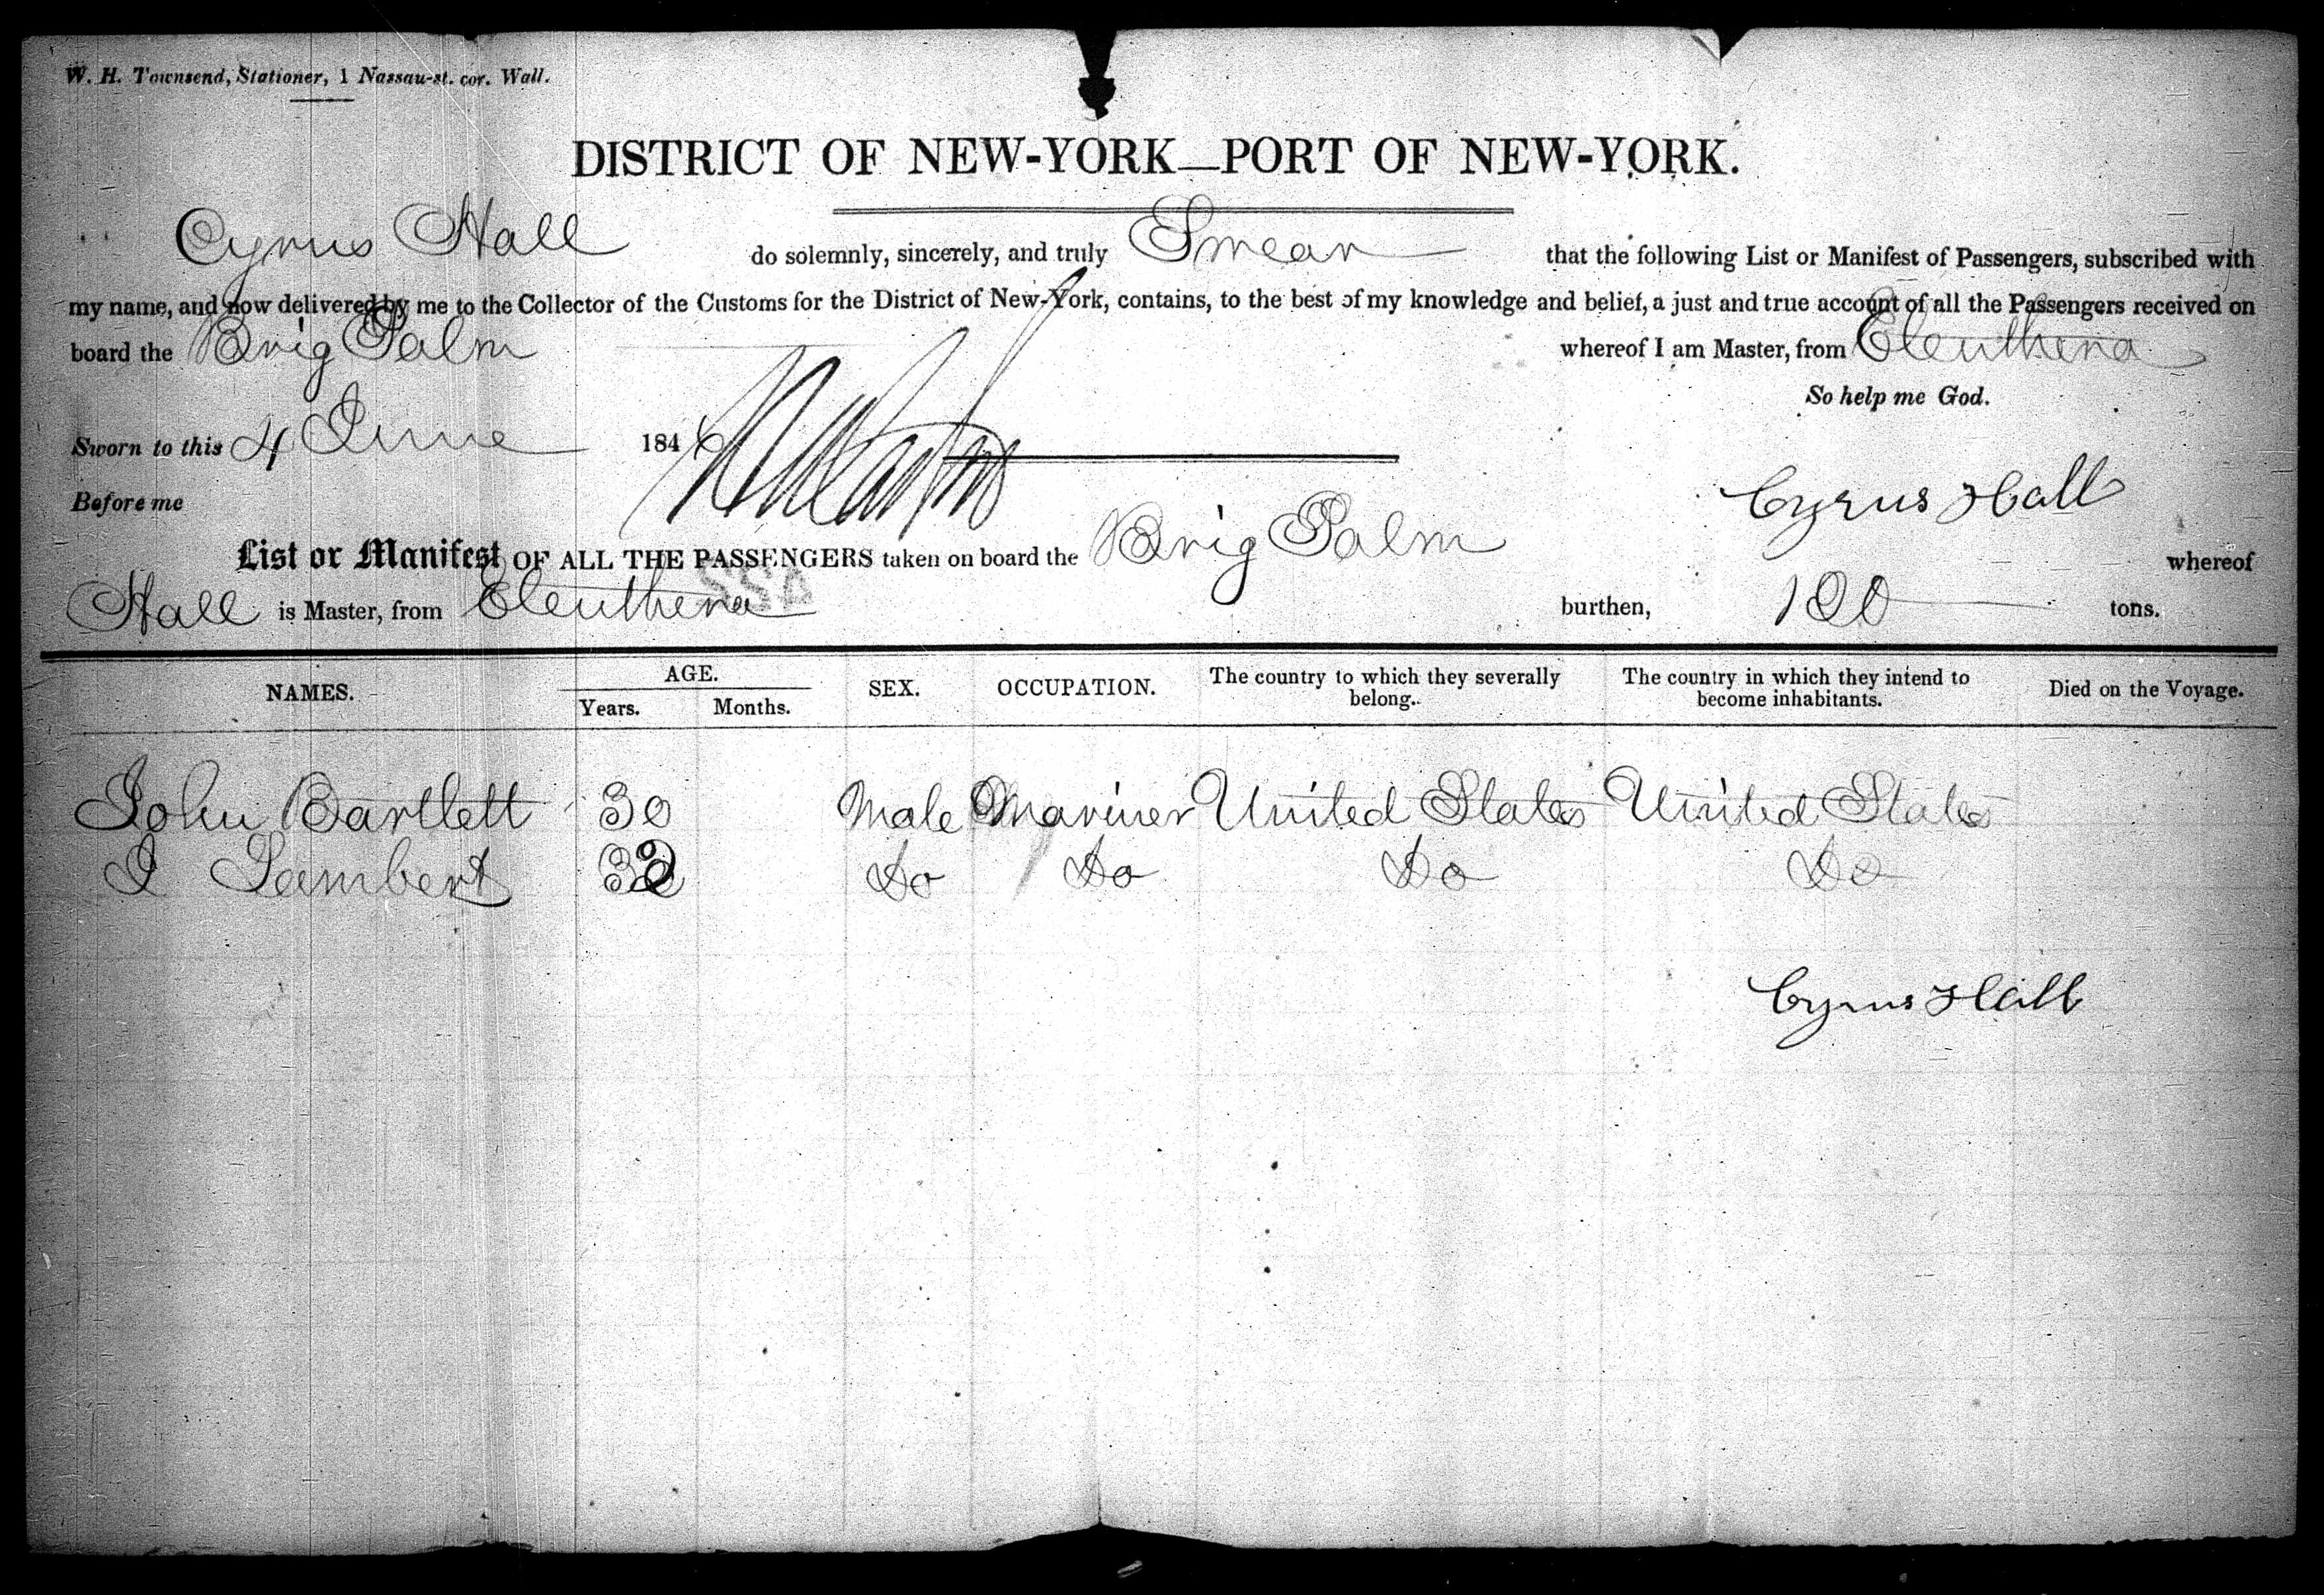 W. H. Townsend, Stationer, 1 Nassau-st. cor. Wall.
DISTRICT OF NEW-YORK—PORT OF NEW-YORK.
Cyrus Hall do solemnly, sincerely, and truly Swear that the following List or Manifest of Passengers, subscribed with
my name, and now delivered by me to the Collector of the Customs for the District of New-York, contains, to the best of my knowledge and belief, a just and true account of all the Passengers received on
board the Brig Palm whereof I am Master, from Eleuthera
So help me God.
Sworn to this 4 June 1846
Cyrus Hall
Before me
List or Manifest OF ALL THE PASSENGERS taken on board the Brig Palm whereof
Hall is Master, from Eleuthera burthen, 100 tons.
NAMES. AGE. Years. Months. SEX. OCCUPATION. The country to which they severally belong. The country in which they intend to become inhabitants. Died on the Voyage.
John Bartlett 30 Male Mariner United States United States
I Lambert 32 Do Do Do Do
Cyrus Hall